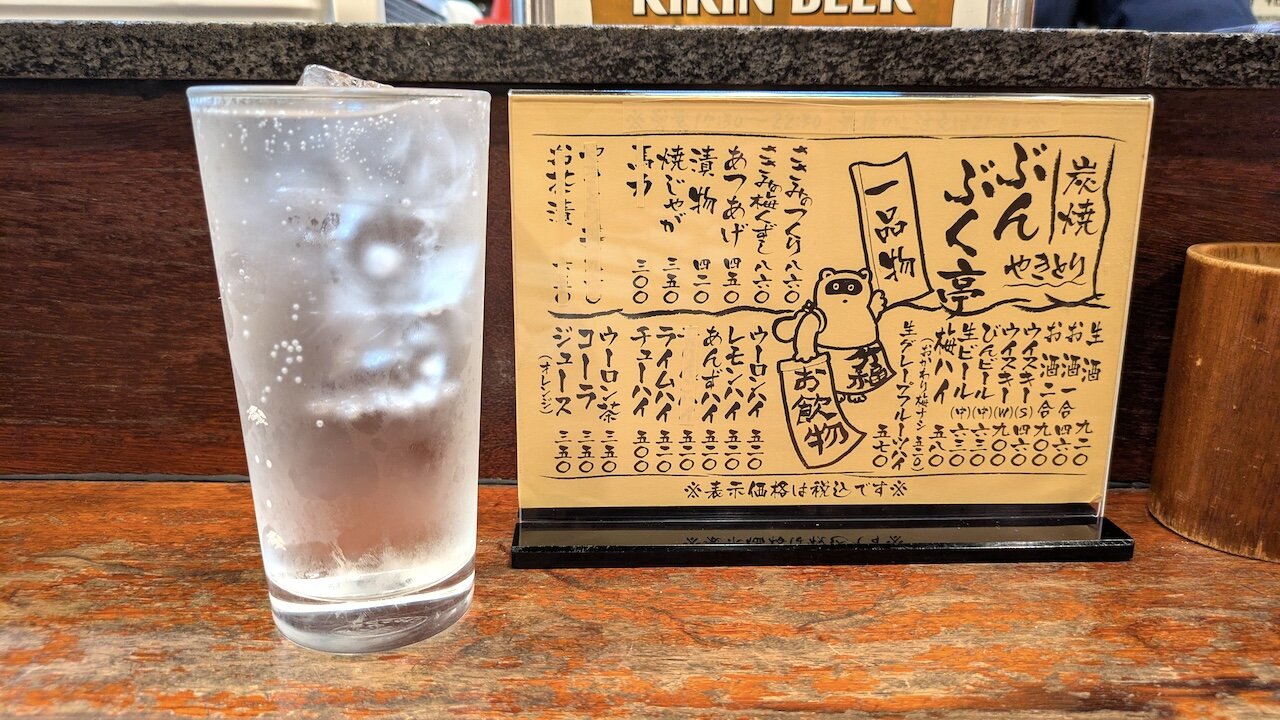 KIRIN BEER
炭焼
やきとり
ぶん
ぶく亭
一品物
ささみのつくり 八六〇
ささみの梅くずし 八六〇
あつあげ 四五〇
漬物 四二〇
焼じゃが 三五〇
三〇〇
お飲物
生酒 九二〇
お酒一合 四六〇
お酒二合 九〇〇
ウイスキー(S) 四六〇
ウイスキー(W) 九〇〇
びんビール(中) 六三〇
生ビール(中) 六三〇
梅ハイ 五八〇
(おかわり梅ナシ 五二〇)
生グレープフルーツハイ 五七〇
ウーロンハイ 五二〇
レモンハイ 五二〇
あんずハイ 五二〇
ライムハイ 五二〇
チューハイ 四五〇
ウーロン茶 三五〇
コーラ 三五〇
ジュース(オレンジ) 三五〇
※表示価格は税込です※